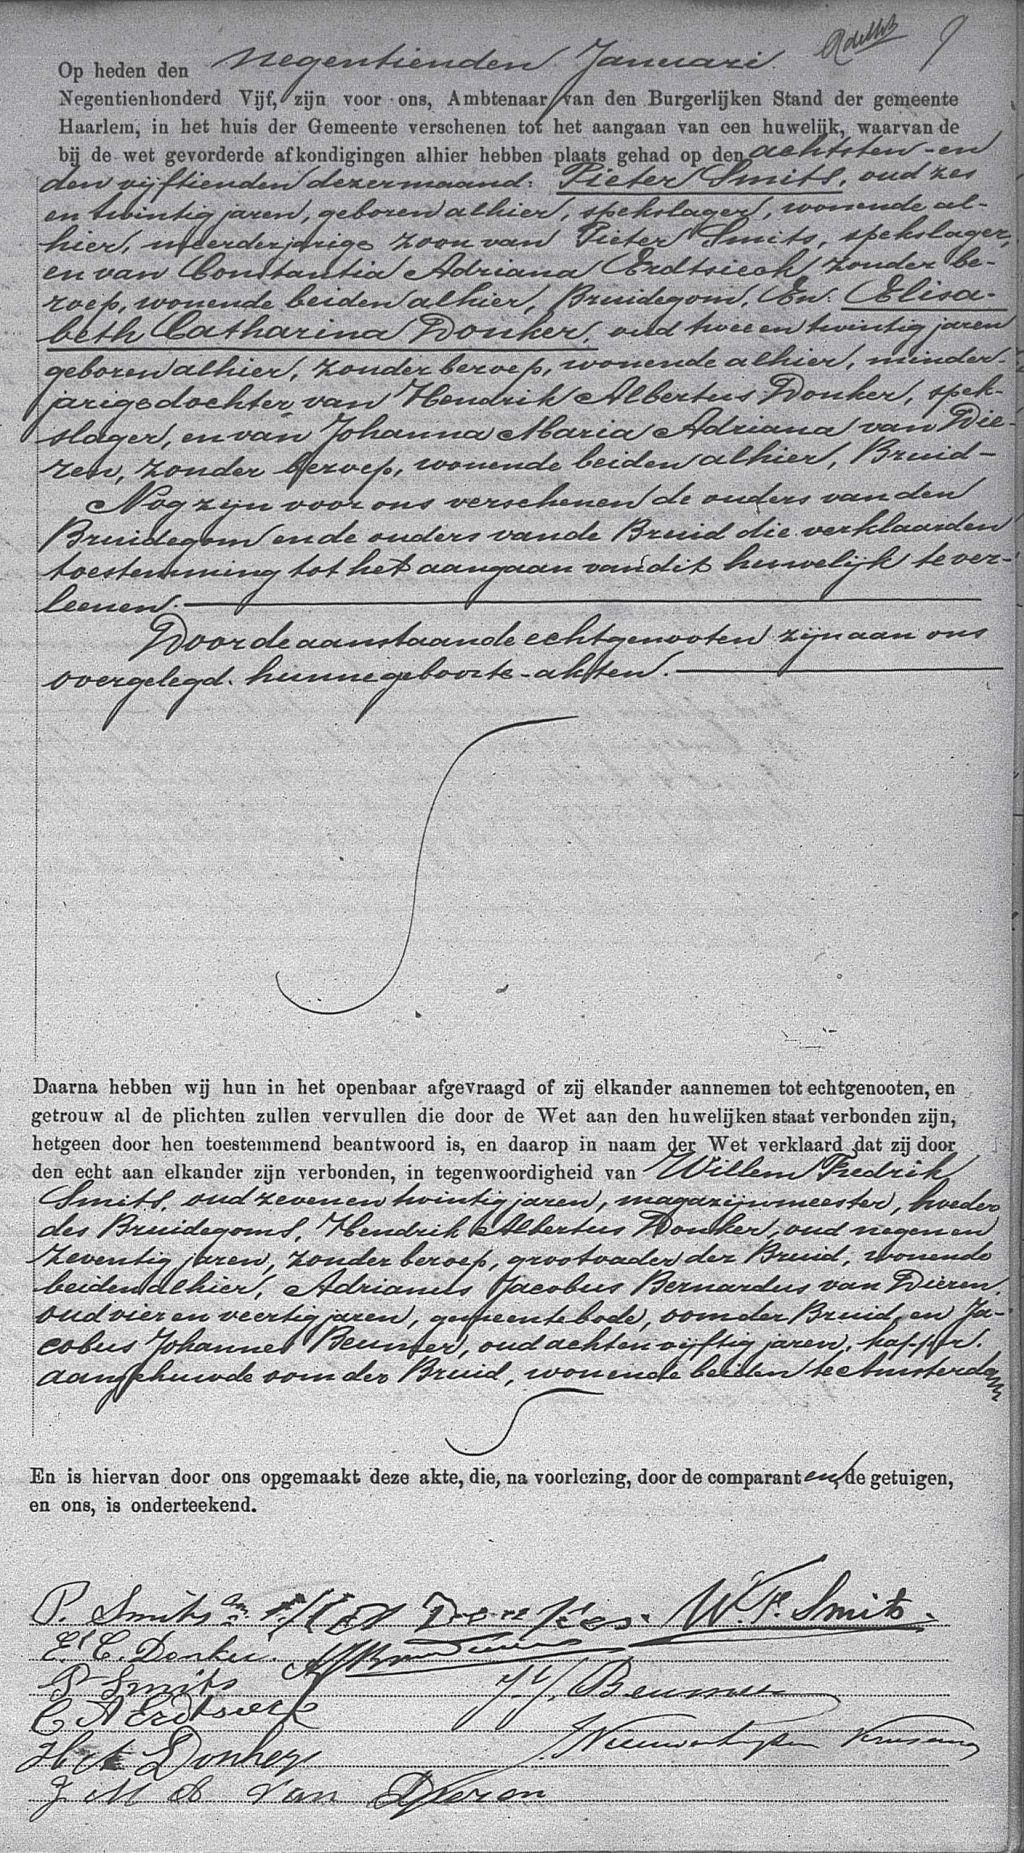 9
Op heden den negentienden Januari
Negentienhonderd Vijf, zijn voor ons, Ambtenaar van den Burgerlijken Stand der gemeente
Haarlem, in het huis der Gemeente verschenen tot het aangaan van een huwelijk, waarvan de
bij de wet gevorderde afkondigingen alhier hebben plaats gehad op den achtsten en
den vijftienden dezer maand: Pieter Smits, oud zes
en twintig jaren, geboren alhier, spekslager, wonende al-
hier, meerderjarige zoon van Pieter Smits, spekslager,
en van Constantia Adriana Erdtsieck, zonder be-
roep, wonende beiden alhier, Bruidegom, En: Elisa-
beth Catharina Donker, oud twee en twintig jaren
geboren alhier, zonder beroep, wonende alhier, minder-
jarige dochter van Hendrik Albertus Donker, spek-
slager, en van Johanna Maria Adriana van Die-
ren, zonder beroep, wonende beiden alhier, Bruid-
Nog zijn voor ons verschenen de ouders van den
Bruidegom en de ouders van de Bruid die verklaarden
toestemming tot het aangaan van dit huwelijk te ver-
leenen.
Door de aanstaande echtgenooten zijn aan ons
overgelegd. hunne geboorte-akten.
Daarna hebben wij hun in het openbaar afgevraagd of zij elkander aannemen tot echtgenooten, en
getrouw al de plichten zullen vervullen die door de Wet aan den huwelijken staat verbonden zijn,
hetgeen door hen toestemmend beantwoord is, en daarop in naam der Wet verklaard dat zij door
den echt aan elkander zijn verbonden, in tegenwoordigheid van Willem Fredrik
Smits, oud zeven en twintig jaren, magazijnmeester, broeder
des Bruidegoms, Hendrik Albertus Donker, oud negen en
zeventig jaren, zonder beroep, grootvader der Bruid, wonende
beiden alhier, Adrianus Jacobus Bernardus van Dieren,
oud vier en veertig jaren, gemeentebode, oom der Bruid, en Ja-
cobus Johannes Beumer, oud acht en vijftig jaren, kapper.
aangehuwde oom der Bruid, wonende beiden te Amsterdam
En is hiervan door ons opgemaakt deze akte, die, na voorlezing, door de comparanten, de getuigen,
en ons, is onderteekend.
P. Smits W. F. Smits.
E. C. Donker.
P Smits J. J. Beumer
C A Erdtsieck
H A Donker J. Nieuwenhuyzen Kruseman
J M A van Dieren